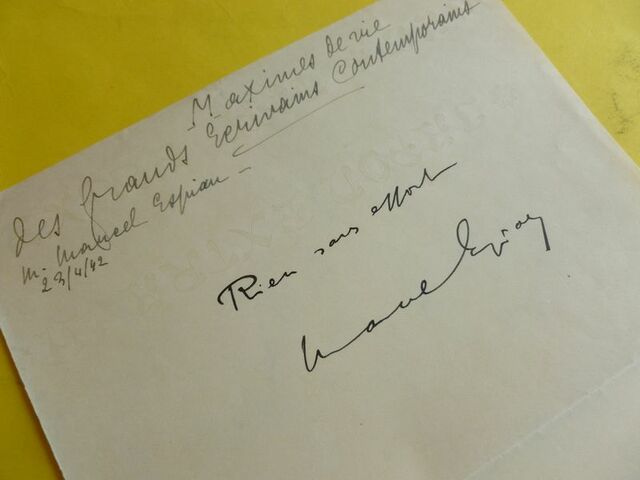 Maximes de vie
des grands Ecrivains Contemporains
M. Marcel Espiau -
23/4/42
Rien sans effort
Marcel Espiau